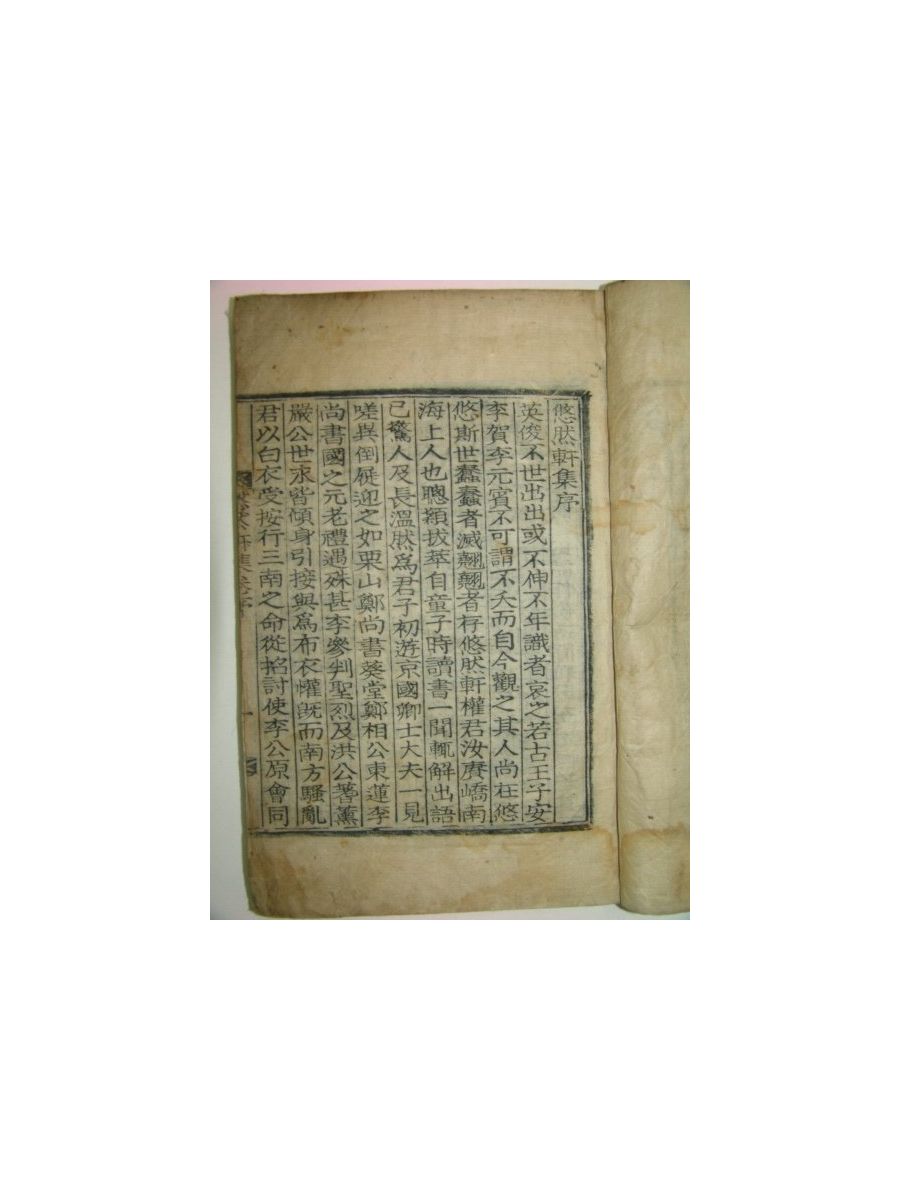 悠然軒集序
英俊不世出出或不伸不年識者哀之若古王子安
李賀李元賓不可謂不夭而自今觀之其人尚在悠
悠斯世蠢蠢者滅翹翹者存悠然軒權君汝賡嶠南
海上人也聰穎拔萃自童子時讀書一聞輒解出語
已驚人及長溫然爲君子初遊京國卿士大夫一見
嗟異倒屣迎之如栗山鄭尚書葵堂鄭相公東蓮李
尚書國之元老禮遇殊甚李參判聖烈及洪公蓍薰
嚴公世永皆傾身引接與爲布衣懽旣而南方騷亂
君以白衣受按行三南之命從招討使李公原會同